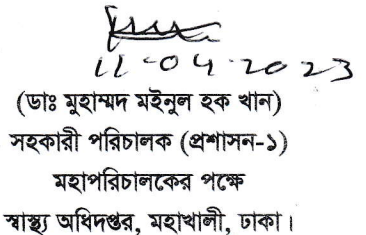 11-04-2023
(ডাঃ মুহাম্মদ মইনুল হক খান)
সহকারী পরিচালক (প্রশাসন-১)
মহাপরিচালকের পক্ষে
স্বাস্থ্য অধিদপ্তর, মহাখালী, ঢাকা।